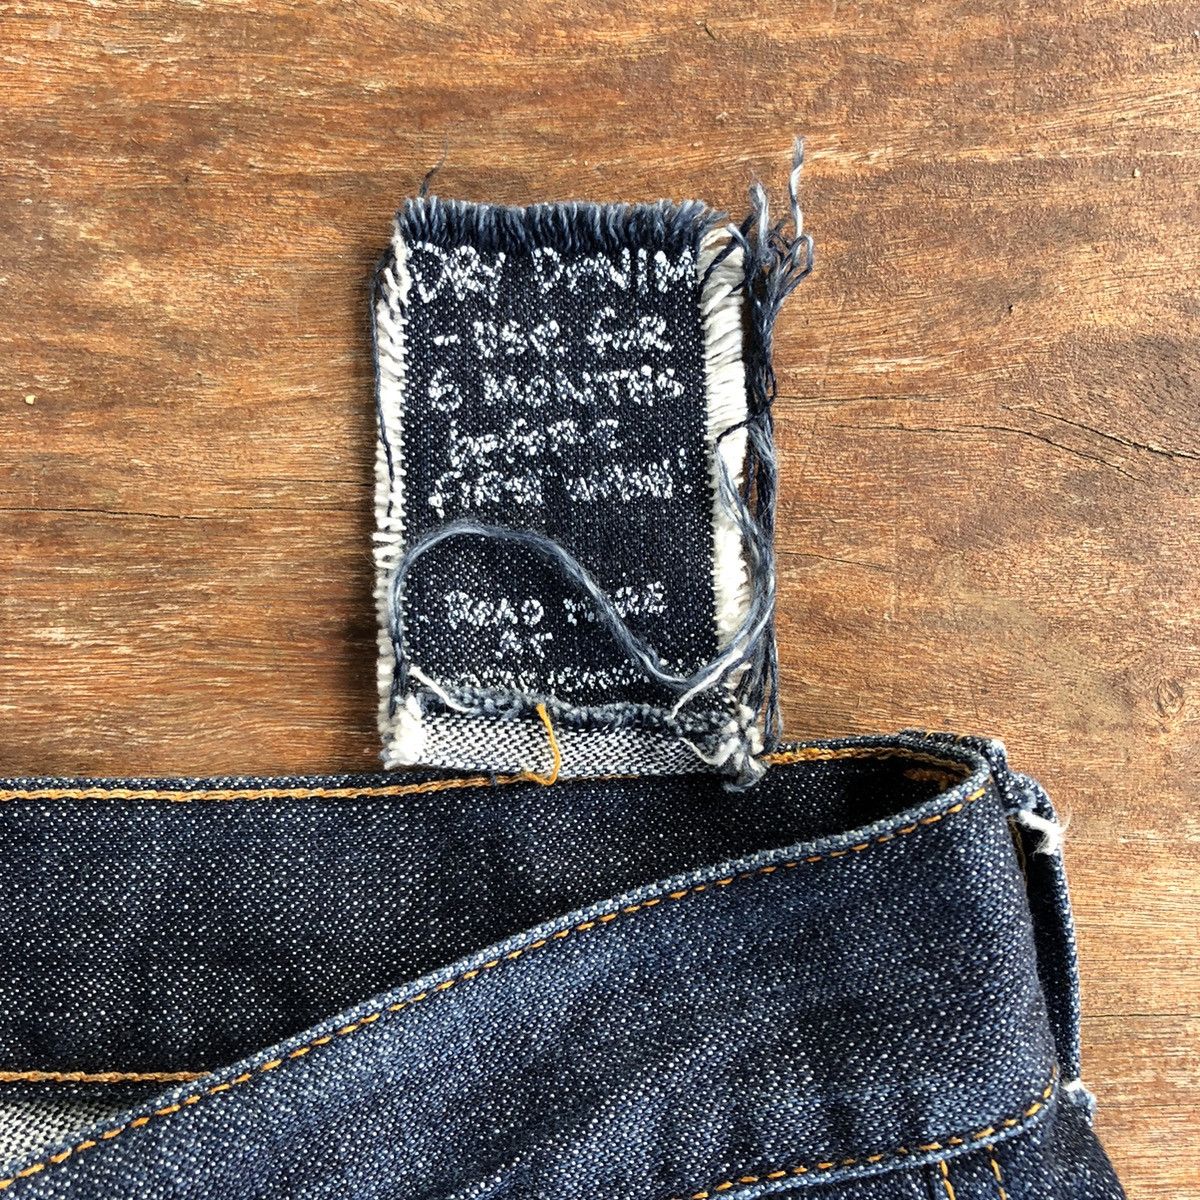 DRY DENIM
- USE FOR
6 MONTHS
before
FIRST WASH!
READ MORE
AT